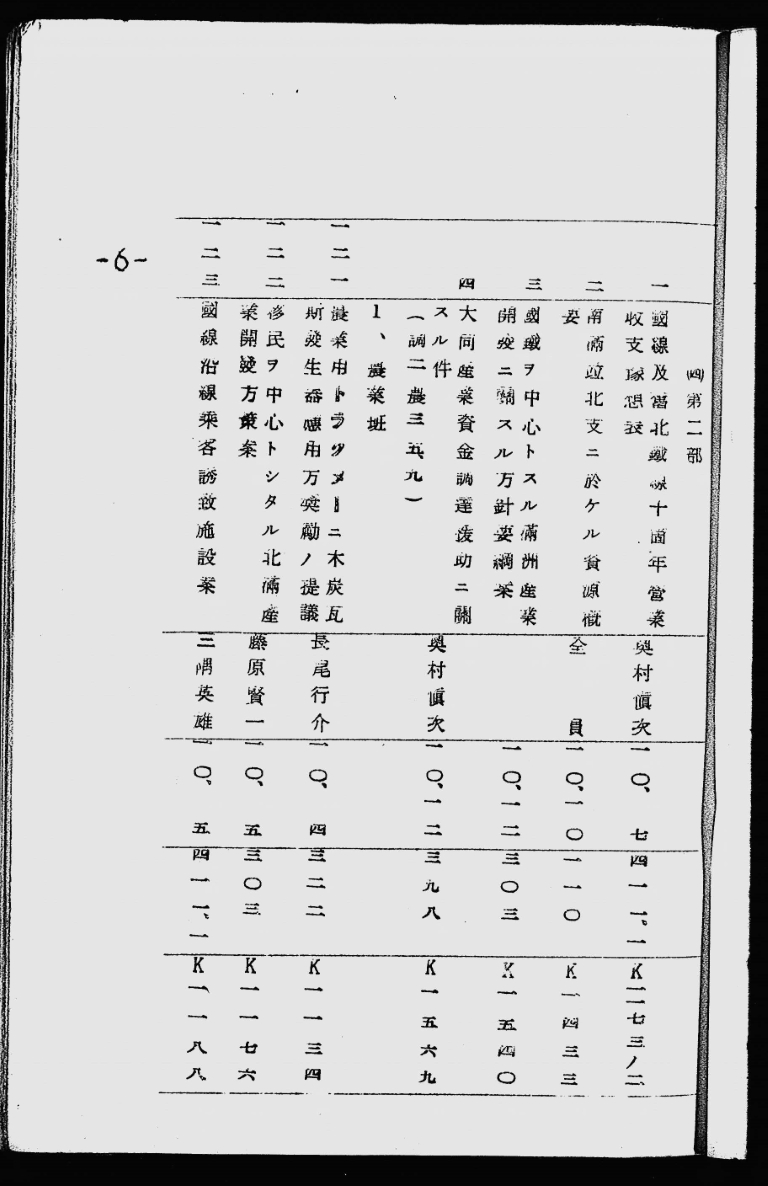 -6-
㈣ 第二部
一 國線及舊北鐵線十箇年營業
收支豫想表 奧村愼次 一〇、七 四一一。一 K一一七三ノ二
二 南滿竝北支ニ於ケル資源概
要 全員 一〇、一〇 一一〇 K一四三三
三 國鐵ヲ中心トスル滿洲産業
開發ニ關スル方針要綱案 一〇、一二 三〇三 K一五四〇
四 大同産業資金調達援助ニ關
スル件
(調二農三五、九) 奧村愼次 一〇、一二 三九八 K一五六九
1、農業班
一二一 農業用トラツクメートニ木炭瓦
斯發生器應用方奬勵ノ提議 長尾行介 一〇、四 三二二 K一一三四
一二二 移民ヲ中心トシタル北滿産
業開發方策案 藤原賢一 一〇、五 三〇三 K一一七六
一二三 國線沿線乘客誘致施設案 三隅英雄 一〇、五 四一一、一 K一一八八